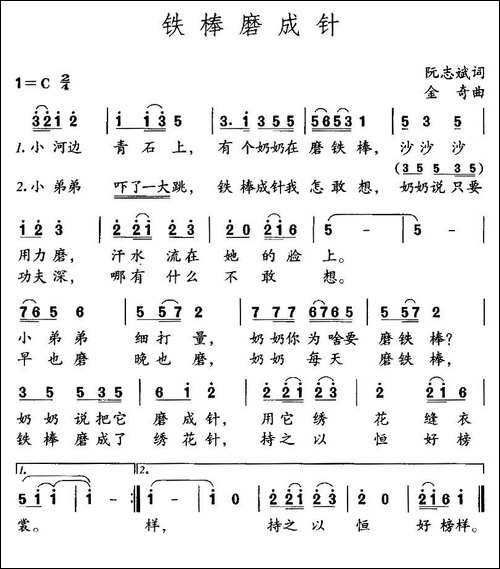 铁棒磨成针
阮志斌词
1=C 2/4
金奇曲
3 2 1 2 | 1 1 3 5 | 3. 1 3 5 5 | 5 6 5 3 5 | 5 3 5 |
1.小河边 青石上，有个奶奶在磨铁棒，沙沙沙
(3 5 5 3 5)
2.小弟弟 吓了一大跳，铁棒成针我怎敢想，奶奶说只要
1 2 3 | 2 2 1 2 3 | 2 0 2 | 2 1 6 | 5 - | 5 - |
用力磨，汗水流在她的脸上。
功夫深，哪有什么不敢想。
7 6 5 6 | 5 5 7 2 | 7 7 7 6 7 6 5 | 5 5 7 2 |
小弟弟 细打量，奶奶你为啥要磨铁棒？
早也磨 晚也磨，奶奶每天磨铁棒，
3 5 5 5 3 5 | 6 1 2 | 2 2 1 2 3 | 2 2 1 6 |
奶奶说把它磨成针，用它绣花缝衣
铁棒磨成了绣花针，持之以恒好榜
1. 2.
5 1 1 | 1 - :| 1 - | 1 0 | 2 2 1 2 3 | 2 0 2 | 2 1 6 1 |
裳。 样， 持之以恒好榜样。